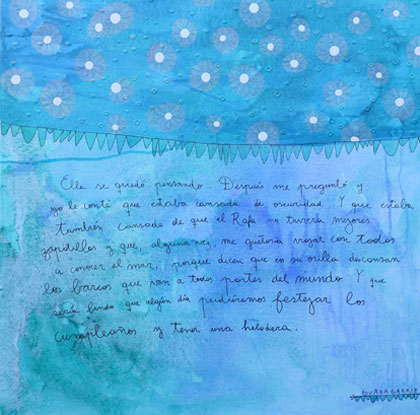 Ella se quedó pensando. Después me preguntó y
yo le conté que estaba cansada de oscuridad. Y que estaba
también cansada de que el Rafa no tuviera mejores
zapatillas y que, alguna vez, me gustaría viajar con todos
a conocer el mar, porque dicen que en su orilla descansan
los barcos que van a todas partes del mundo. Y que
sería lindo que algún día pudiéramos festejar los
cumpleaños y tener una heladera.